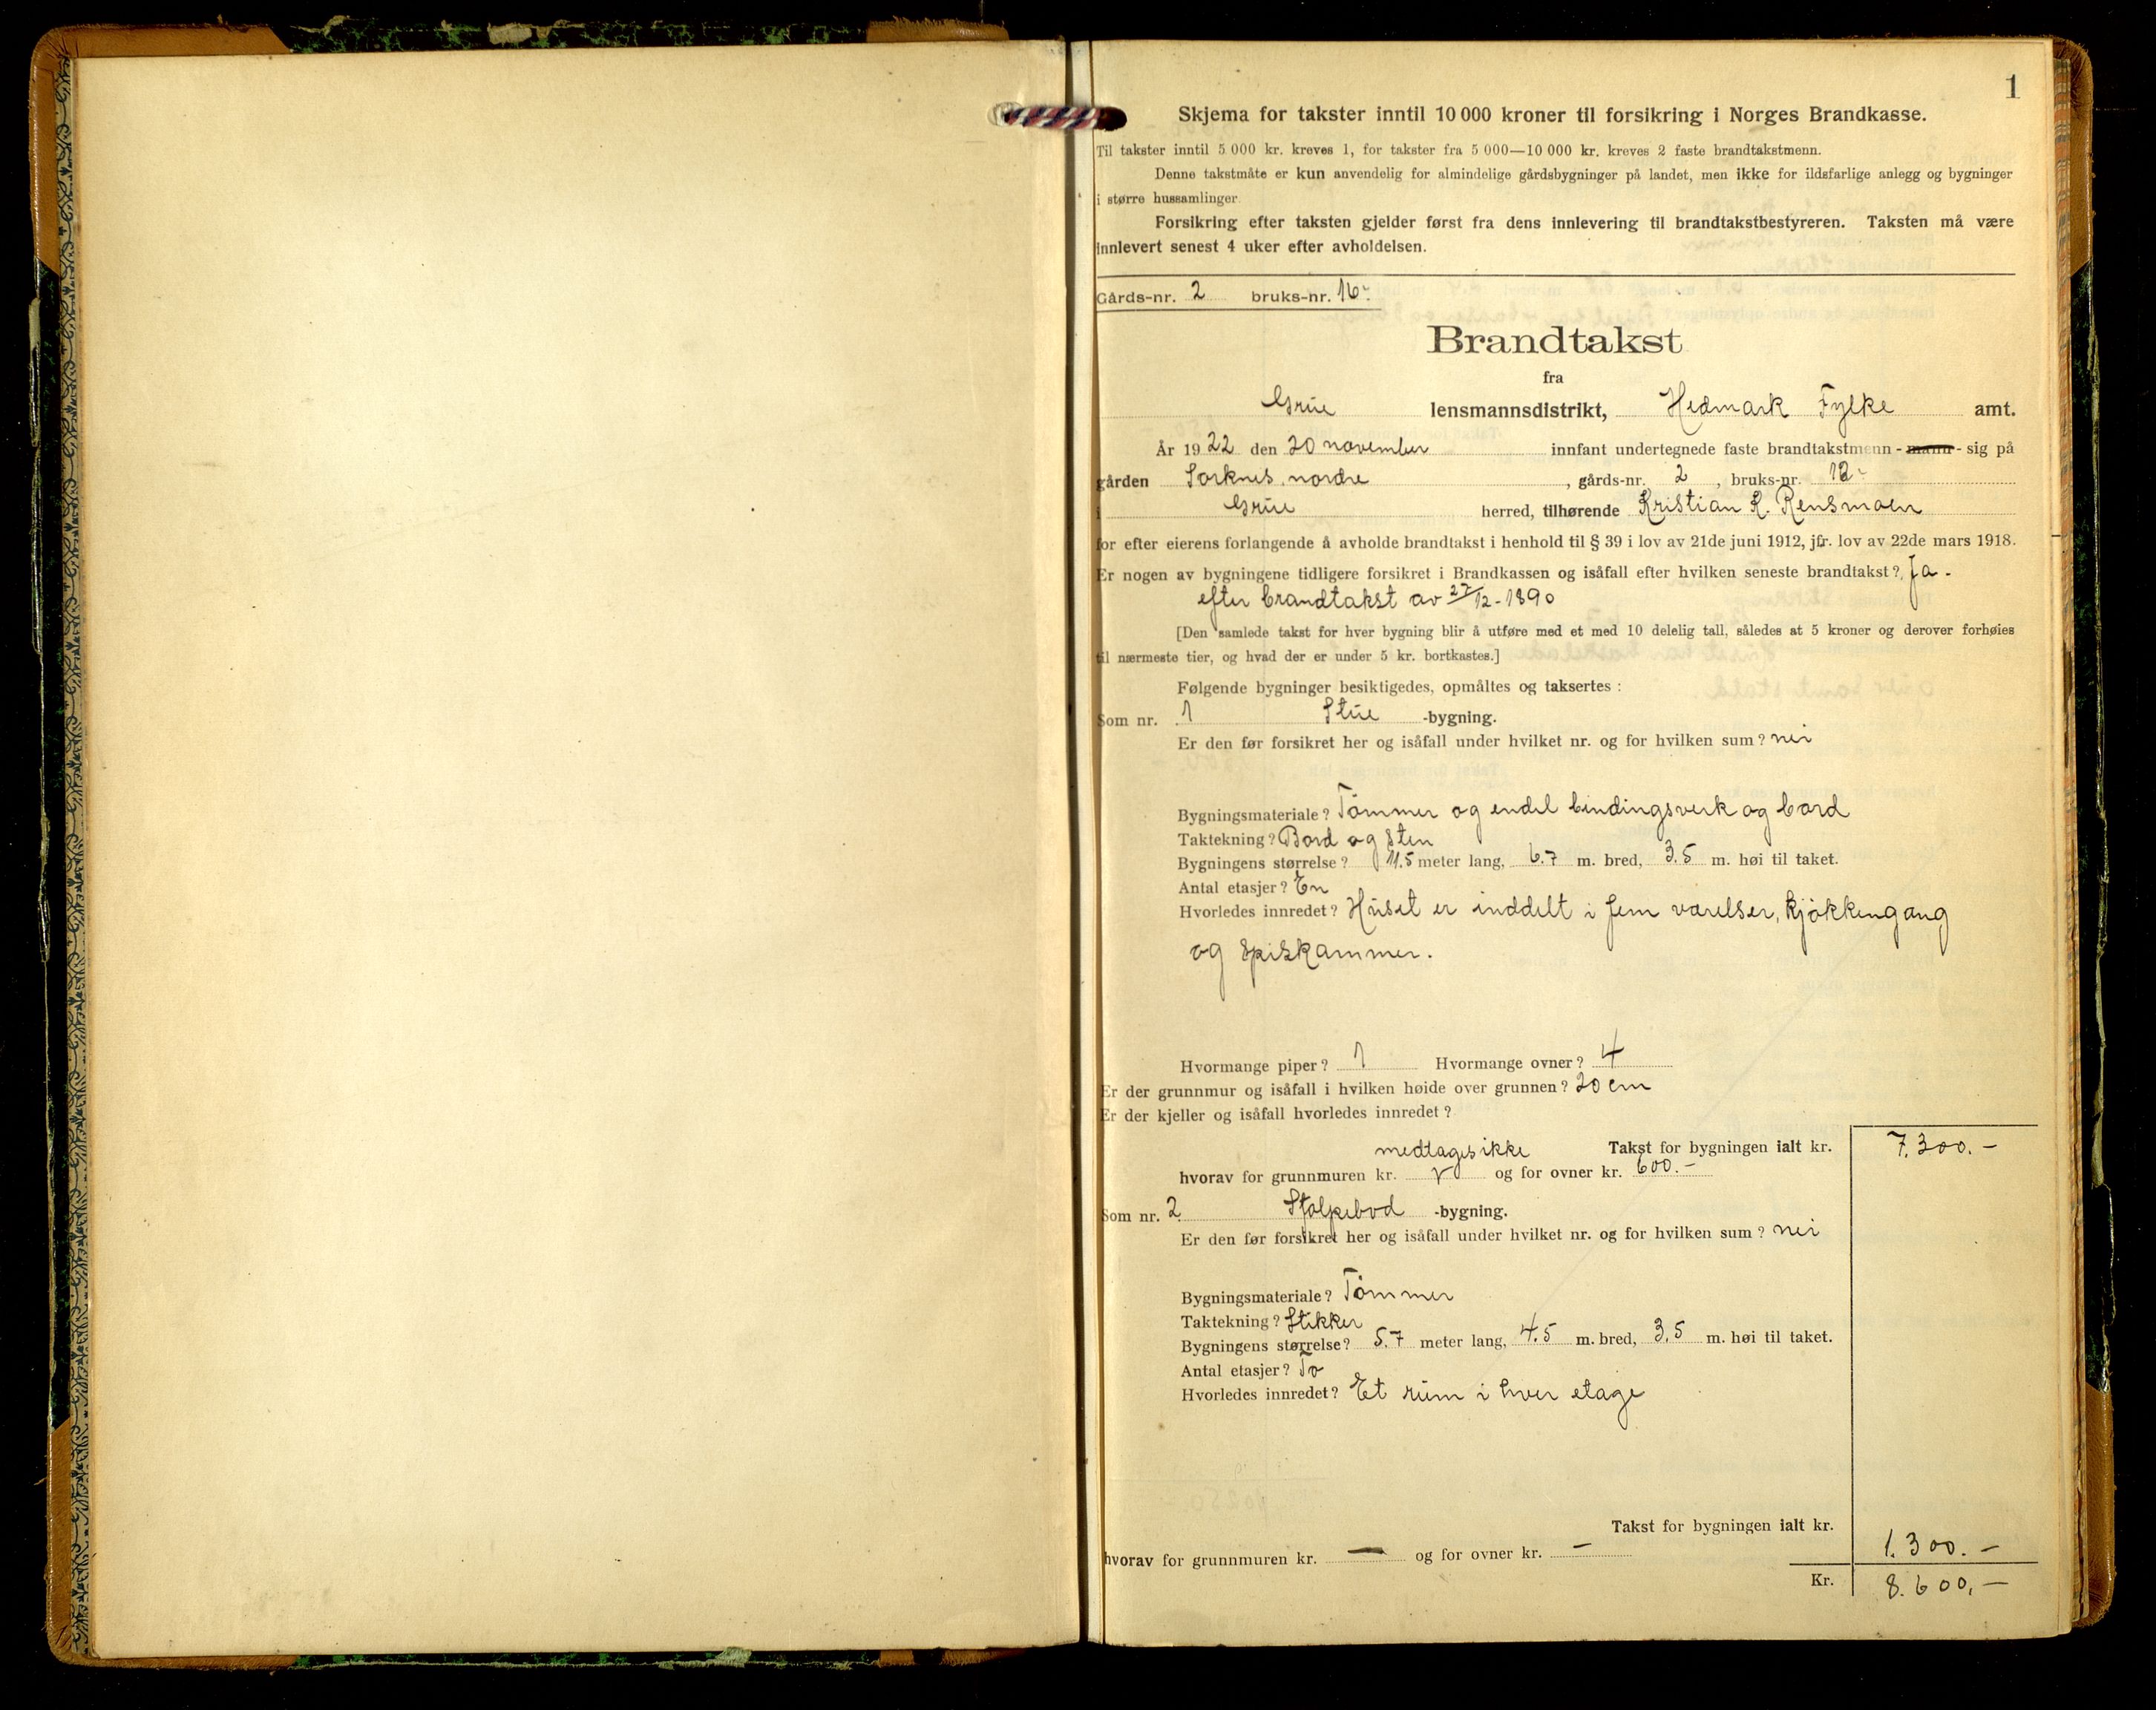 1
Skjema for takster inntil 10 000 kroner til forsikring i Norges Brandkasse.
Til takster inntil 5 000 kr. kreves 1, for takster fra 5 000—10 000 kr. kreves 2 faste brandtakstmenn.
Denne takstmåte er kun anvendelig for almindelige gårdsbygninger på landet, men ikke for ildsfarlige anlegg og bygninger
i større hussamlinger
Forsikring efter taksten gjelder først fra dens innlevering til brandtakstbestyreren. Taksten må være
innlevert senest 4 uker efter avholdelsen.
Gårds-nr. 2 bruks-nr. 16
Brandtakst
fra
Grue lensmannsdistrikt, Hedmark Fylke amt.
År 1922 den 20 november innfant undertegnede faste brandtakstmenn - mann - sig på
gården Sorknes nordre, gårds-nr. 2, bruks-nr. 12
i Grue herred, tilhørende Kristian K. Rensmoen
for efter eierens forlangende å avholde brandtakst i henhold til § 39 i lov av 21de juni 1912, jfr. lov av 22de mars 1918.
Er nogen av bygningene tidligere forsikret i Brandkassen og isåfall efter hvilken seneste brandtakst? Ja.
efter brandtakst av 27/12-1890
[Den samlede takst for hver bygning blir å utføre med et med 10 delelig tall, således at 5 kroner og derover forhøies
til nærmeste tier, og hvad der er under 5 kr. bortkastes.]
Følgende bygninger besiktigedes, opmåltes og taksertes :
Som nr. 1 Stue -bygning.
Er den før forsikret her og isåfall under hvilket nr. og for hvilken sum? nei
Bygningsmateriale? Tømmer og endel bindingsverk og bord
Taktekning? Bord og sten
Bygningens størrelse? 11.5 meter lang, 6.7 m. bred, 3.5 m. høi til taket.
Antal etasjer? En
Hvorledes innredet? Huset er inddelt i fem værelser, kjøkkengang
og spiskammer.
Hvormange piper? 1 Hvormange ovner? 4
Er der grunnmur og isåfall i hvilken høide over grunnen? 20 cm
Er der kjeller og isåfall hvorledes innredet?
medtages ikke Takst for bygningen ialt kr. 7.300.-
hvorav for grunnmuren kr. og for ovner kr. 600.-
Som nr. 2. Stolpebod -bygning.
Er den før forsikret her og isåfall under hvilket nr. og for hvilken sum? nei
Bygningsmateriale? Tømmer
Taktekning? Stikker
Bygningens størrelse? 5.7 meter lang, 4.5 m. bred, 3.5 m. høi til taket.
Antal etasjer? To
Hvorledes innredet? Et rum i hver etage
Takst for bygningen ialt kr. 1.300.-
hvorav for grunnmuren kr. — og for ovner kr. —
Kr. 8.600,-